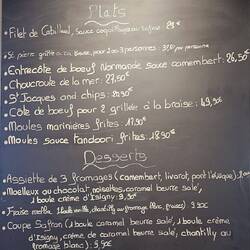 Plats
• Filet de Cabillaud, sauce
• St pierre grillé pour 2 ou 3 personnes : par personne
• Entrecôte de boeuf Normande sauce camembert: 26,50€
• Choucroute de la mer: 27,50€
• St Jacques and chips: 20,50€
• Côte de boeuf pour 2 grillée à la braise: 49,90€
• Moules marinières frites : 17.50€
• Moules sauce Tandoori frites: 18.90€
Desserts
• Assiette de 3 fromages (camembert, livarot, pont l'évêque):
• Moelleux au chocolat noisettes, caramel beurre salé,
1 boule crème d'Isigny: 9,90€
• Fraise melba
• Coupe Saffron (1 boule caramel beurre salé, 1 boule crème
d'Isigny, crème de caramel beurre salé, chantilly au
fromage blanc) : 9,90€